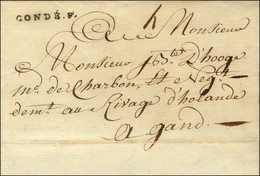 CONDÉ.F.
A Monsieur
Monsieur D'hooge
md. de Charbon, et Negt.
demt. au Rivage d'holande
a gand